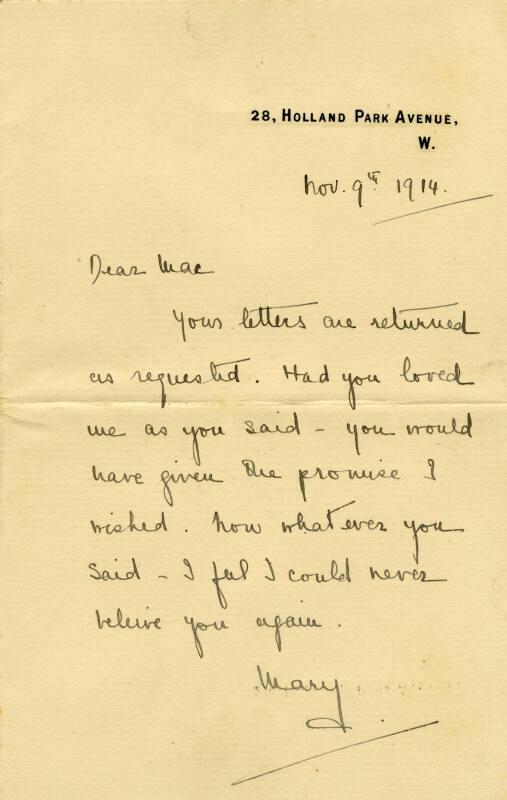 28, HOLLAND PARK AVENUE,
W.
Nov. 9th 1914.
Dear Mac
Your letters are returned
as requested. Had you loved
me as you said – you would
have given the promise I
wished. Now whatever you
said – I feel I could never
beleive you again.
Mary